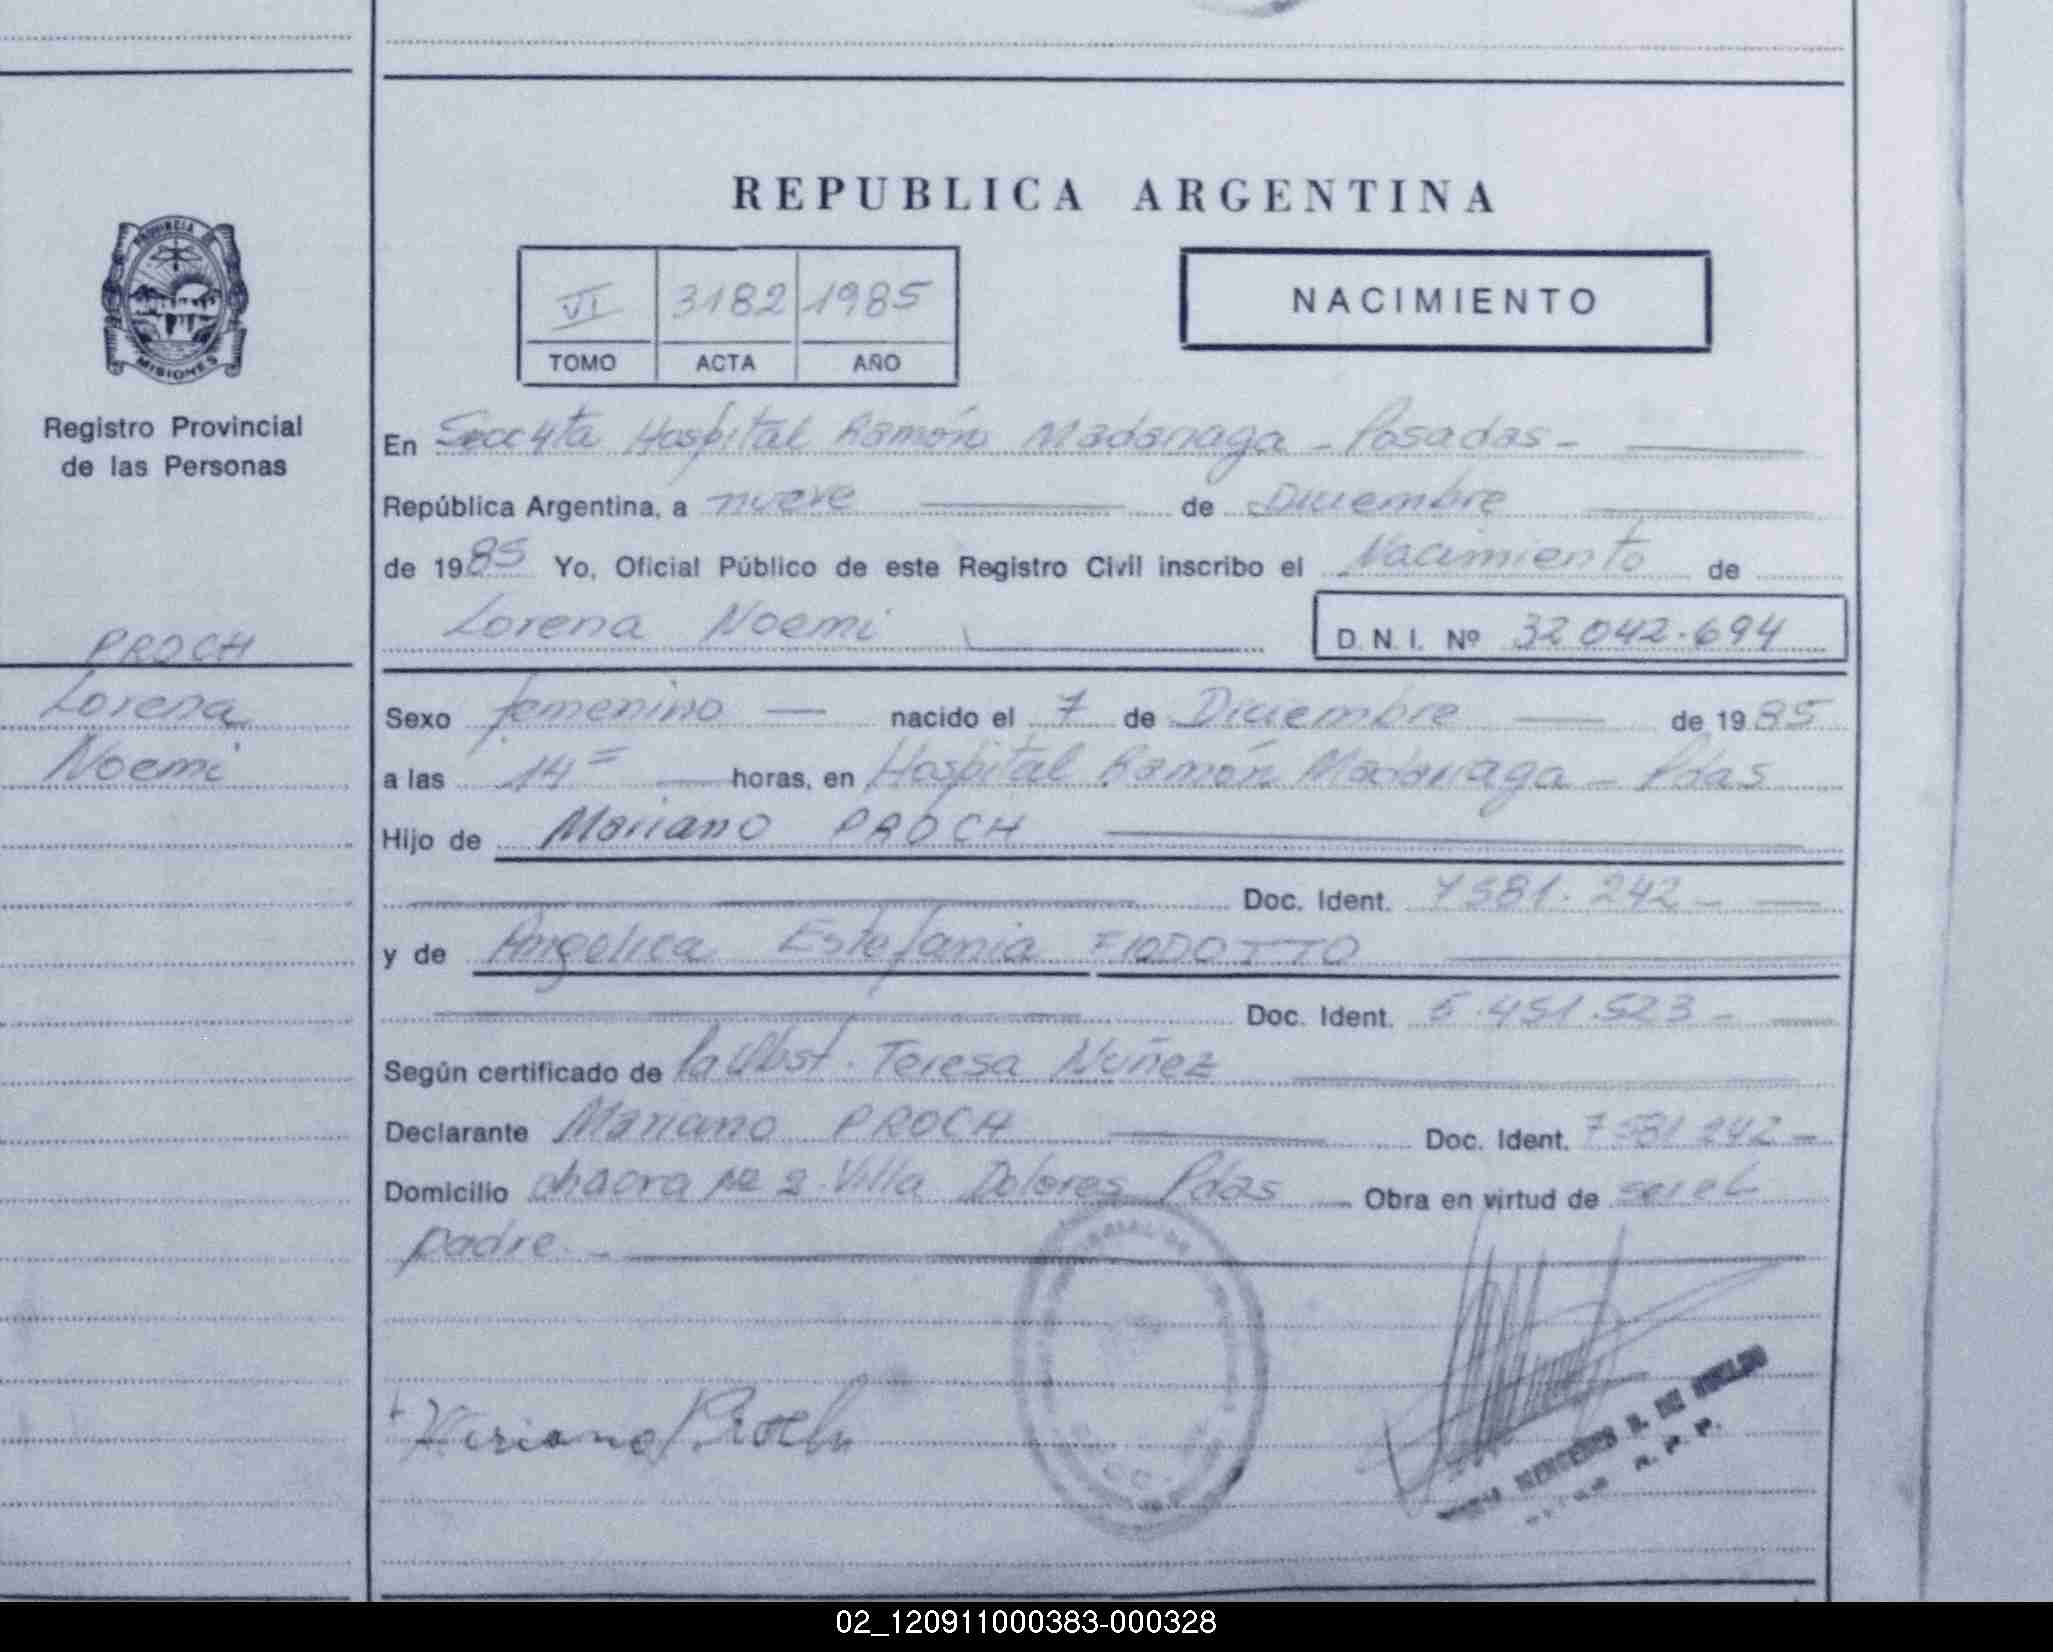 PROVINCIA DE
MISIONES
Registro Provincial
de las Personas
PROCH
Lorena
Noemi
REPUBLICA ARGENTINA
VI 3182 1985
TOMO ACTA AÑO
NACIMIENTO
En Secc 4ta Hospital Ramón Madariaga - Posadas -
República Argentina, a nueve de Diciembre
de 1985 Yo, Oficial Público de este Registro Civil inscribo el Nacimiento de
Lorena Noemi D. N. I. Nº 32 042.694
Sexo femenino — nacido el 7 de Diciembre — de 1985
a las 14 = — horas, en Hospital Ramón Madariaga - Pdas
Hijo de Mariano PROCH
Doc. Ident. 7581.242 -
y de Angelica Estefania
Doc. Ident. 5.451.523 -
Según certificado de la Obst. Teresa Nuñez
Declarante Mariano PROCH Doc. Ident. 7581242 -
Domicilio chacra Nº 2 Villa Dolores Pdas — Obra en virtud de ser el
padre. -
Mariano Proch
R. P. P.
02_120911000383-000328